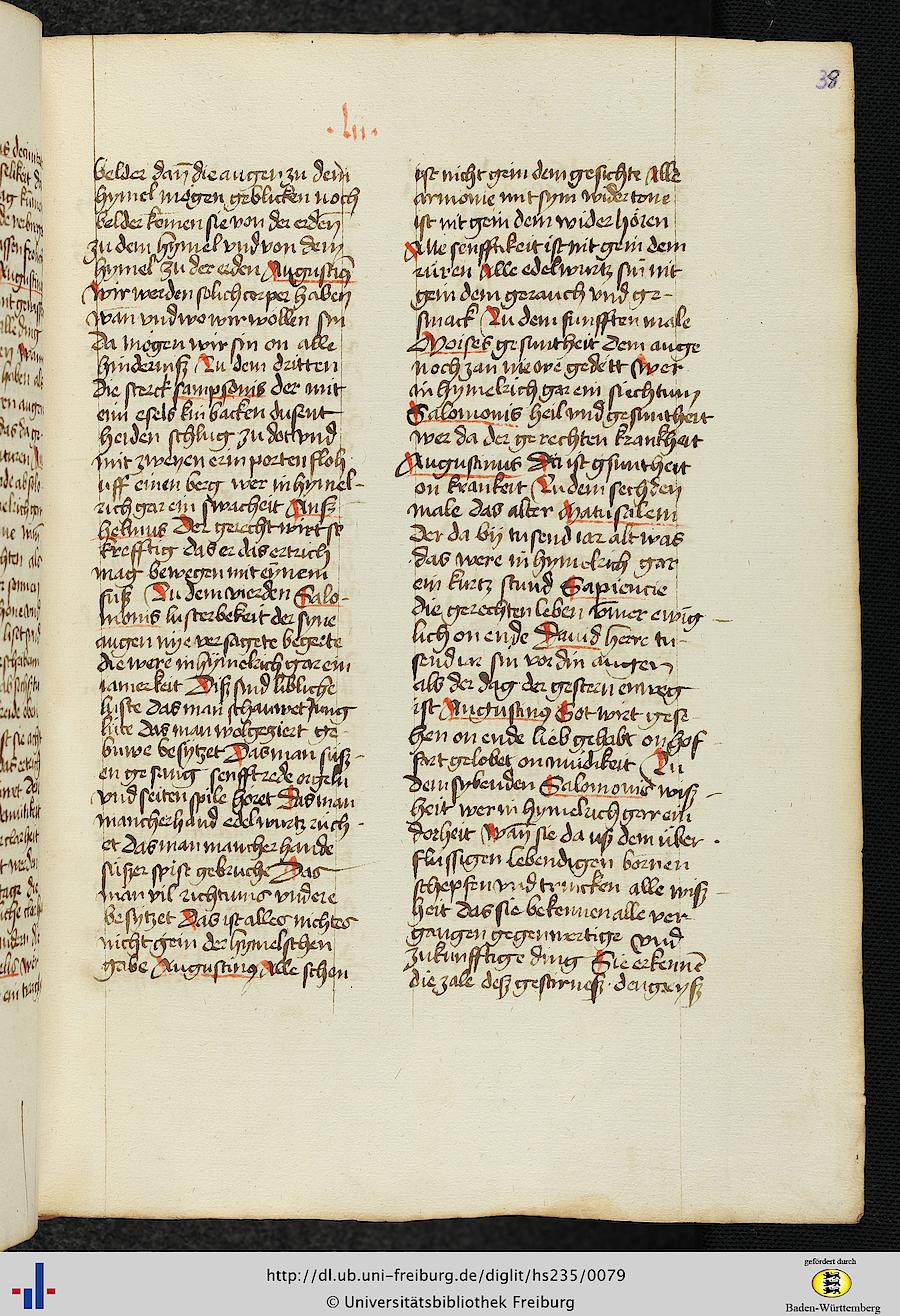 38
.lii.
belder dan̄ die augen zu dem
hymel mogen geblicken noch
belder komen sie von der erden
zu dem hymel vnd von dem
hymel zu der erden Augustin̄
wir werden solich corper haben
wan vnd wo wir wollen sin
da mogen wir sin on alle
hindernisz Zu dem dritten
die sterck sampsonis der mit
eim esels kinbacken dusent
heiden schlug zu dot vnd
mit zweyen erin porten floh
uff einen berg wer in hymel-
rich gar ein swacheit Ansz
helmus Der gerecht wirt so
krefftig das er das ertrich
mag bewegen mit eynem
fusz Zu dem vierden Salo-
monis lusterbekeit der syne
augen nye versagete begerte
die were in hymelrich gar ein
iamerkeit Disz sind libliche
luste das man schauwet Jung
lute das man wolgeziert ge-
buwe besytzet Das man susz-
en gesang senfft rede orgeln
vnd seiten spile horet Das man
mancherhand edel wurtz ruch-
et Das man mancher hande
suszer spise gebruche Das
man vil richtums vnd ere
besytzet Das ist alles nichtes
nicht gein der hymelschen
gabe Augustinus Alle schon
ist nicht gein dem gesichte Alle
armonie mit sym wider tone
ist nit gein dem wider hören
Alle senfftikeit ist nit gein dem
rüren Alle edel wurtz sin nit
gein dem gerauch vnd ge-
smack Zu dem funfften male
Moises gesuntheit dem auge
noch zan nie we gedett Wer
in hymelrich gar ein siechtum
Salomonis heil vnd gesuntheit
wer da der gerechten krankheit
Augustinus Da ist gsuntheit
on krankeit Zu dem sechsten
male das alter Matusalem
Der da bij tusend iar alt was
das were in hymelrich gar
ein kurtz stund Sapiencie
die gerechten leben ymer ewig
lich on ende Dauid herre tu-
send iar sin vor din augen
als der dag der gestern enweg
ist Augustinus Got wirt gese-
hen on ende lieb gehabt on hof
fart gelobet on mudikeit Zu
dem sybenden Salomonis wisz-
heit wer in hymelrich gar ein
dorheit Wan̄ sie da usz dem über
flussigen lebendigen bornen
schepfen vnd trincken alle wisz-
heit das sie bekennen alle ver
gangen gegenwertige vnd
zukunfftige ding Sie erkennē
die zale desz gestirnesz den greysz
http://dl.ub.uni-freiburg.de/diglit/hs235/0079
© Universitätsbibliothek Freiburg
gefördert durch
Baden-Württemberg